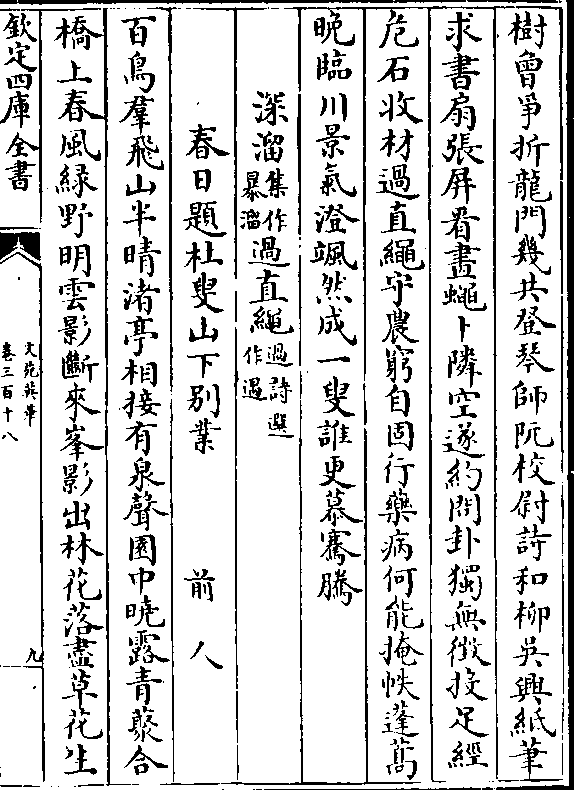 樹曾爭折龍門幾共登琴師阮校尉詩和柳吳興紙筆
求書扇張屏看畫蠅卜隣空遂約問卦獨無徴投足經
危石收材過直繩守農窮自固行藥病何能掩帙蓬蒿
晩臨川景氣澄颯然成一叟誰更慕騫騰
深溜集作暴溜過直繩過詩選作遇
春日題杜叟山下别業 前人
百鳥羣飛山半晴渚亭相接有泉聲園中曉露青藂合
橋上春風緑野明雲影斷來峯影出林花落盡草花生
欽定四庫全書
文苑英華
卷三百十八
九